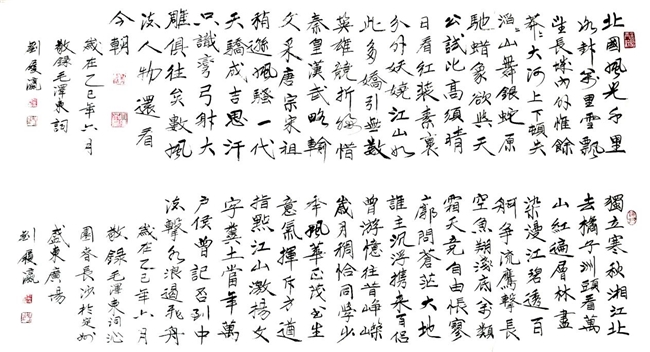 北國風光千里
冰封萬里雪飄
望長城內外惟餘
莽〻大河上下頓失
滔〻山舞銀蛇原
馳蜡象欲與天
公試比高須晴
日看紅裝素裹
分外妖嬈江山如
此多嬌引無數
英雄競折腰惜
秦皇漢武略輸
文采唐宗宋祖
稍遜風騷一代
天驕成吉思汗
只識彎弓射大
雕俱往矣數風
流人物還看
今朝
歲在乙巳年六月
敬錄毛澤東詞
劉履瀛
獨立寒秋湘江北
去橘子洲頭看萬
山紅遍層林盡
染漫江碧透百
舸爭流鷹擊長
空魚翔淺底萬類
霜天競自由悵寥
廓問蒼茫大地
誰主沉浮携來百侶
曾游憶往昔崢嶸
歲月稠恰同學少
年風華正茂書生
意氣揮斥方遒
指點江山激揚文
字糞土當年萬
戶侯曾記否到中
流擊水浪遏飛舟
歲在乙巳年六月
敬錄毛澤東詞沁
園春長沙於定州
盛東廣場
劉履瀛